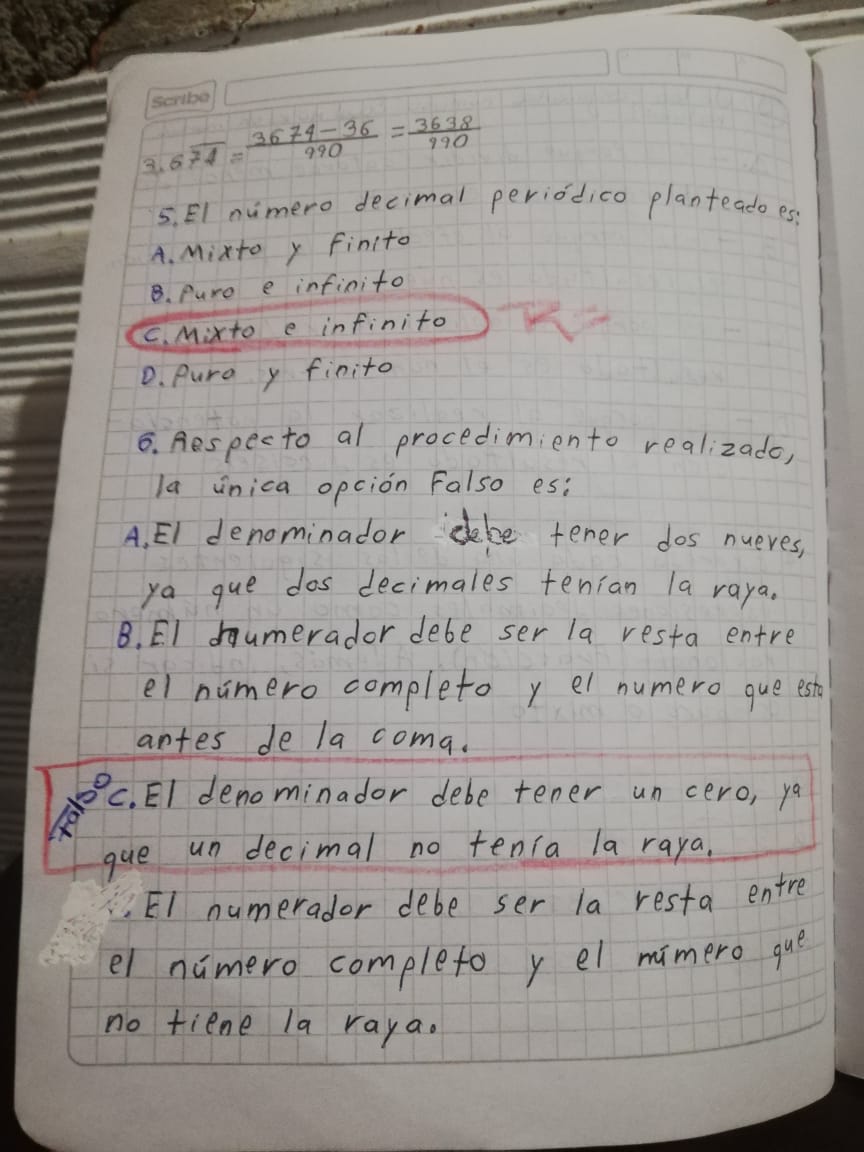 Scribe
3.674 = 3674-36/990 = 3638/990
5. El número decimal periódico planteado es:
A. Mixto y finito
B. Puro e infinito
C. Mixto e infinito R=
D. Puro y finito
6. Respecto al procedimiento realizado,
la única opción Falso es:
A. El denominador debe tener dos nueves,
ya que dos decimales tenían la raya.
B. El numerador debe ser la resta entre
el número completo y el numero que esta
antes de la coma.
falso C. El denominador debe tener un cero, ya
que un decimal no tenía la raya.
El numerador debe ser la resta entre
el número completo y el número que
no tiene la raya.